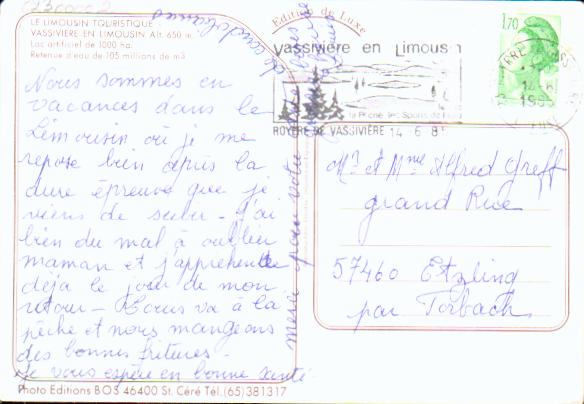 LE LIMOUSIN TOURISTIQUE
VASSIVIÈRE EN LIMOUSIN Alt. 650 m.
Lac artificiel de 1000 ha.
Retenue d'eau de 105 millions de m3
Nous sommes en
vacances dans le
Limousin où je me
repose bien depuis la
dure épreuve que je
viens de subir - j'ai
bien du mal à oublier
maman et j'appréhende
déjà le jour de mon
retour - Louis va à la
pêche et nous mangeons
des bonnes fritures -
Je vous espère en bonne santé
merci pour votre
Photo Editions BOS 46400 St. Céré Tél.(65)381317
Edition de Luxe
Vassivière en Limousin
la Pêche, les Sports de
ROYERE DE VASSIVIÈRE 14-6-8
1,70
Mr et Mme Alfred Greff
grand Rue
57460 Etzling
par Forbach